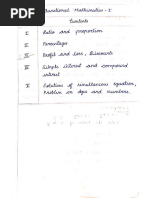 Functional Mathematics - I
Contents
I Ratio and proportion
II Percentages
III Profit and Loss, Discounts
IV Simple interest and compound
interest
V Solution of simultaneous equation,
Problem on ages and numbers.